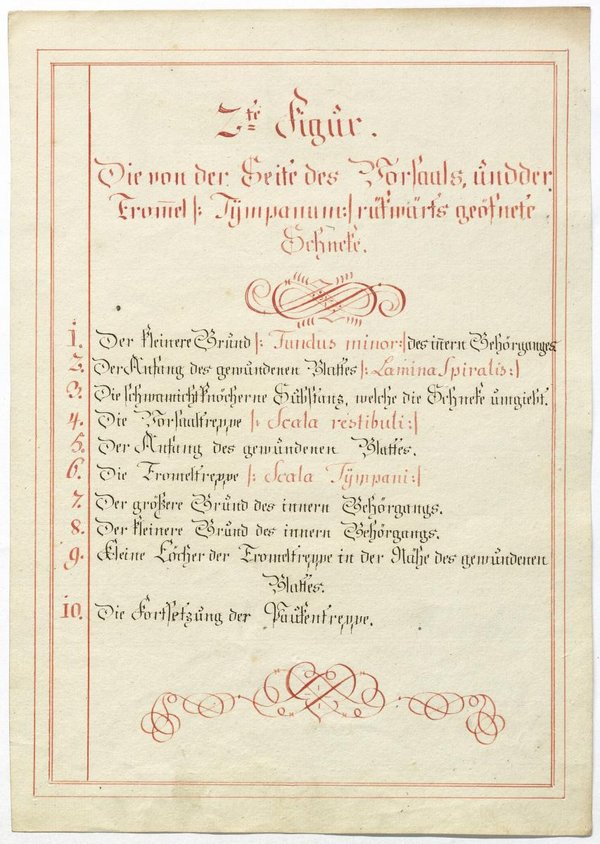 2te Figur.
Die von der Seite des Vorsaals, und der
Trom̄el |: Tÿmpanum :| rükwärts geöfnete
Schneke.
1. Der kleinere Grund |: Fundus minor :| des iñern Gehörganges
2. Der Anfang des gewundenen Blattes |: Lamina Spiralis :|
3. Die schwamichtknöcherne Substanz, welche die Schneke umgiebt.
4. Die Vorsaaltreppe |: Scala vestibuli :|
5. Der Anfang des gewundenen Blattes.
6. Die Tromeltreppe |: Scala Tÿmpani :|
7. Der größere Grund des innern Gehörgangs.
8. Der kleinere Grund des innern Gehörgangs.
9. Kleine Löcher der Tromeltreppe in der Nähe des gewundenen
Blattes.
10. Die Fortsetzung der Paukentreppe.